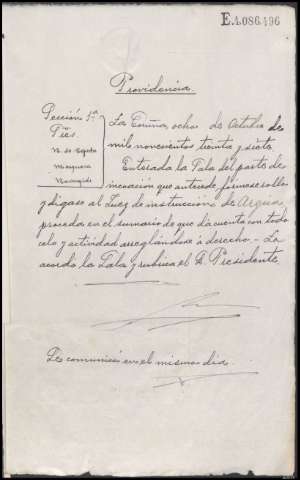 E.1.086.196
Providencia
Sección 1ª
Sres
La Coruña, ocho de Octubre de
mil novecientos treinta y siete
Enterada la Sala del parte de
incoación que antecede, fórmese rollo
y dígase al Juez de instrucción de Arzua,
proceda en el sumario de que da cuenta con todo
celo y actividad arreglándose a derecho.- Lo
acordó la Sala y rubrica el S. Presidente
Se comunicó en el mismo día.